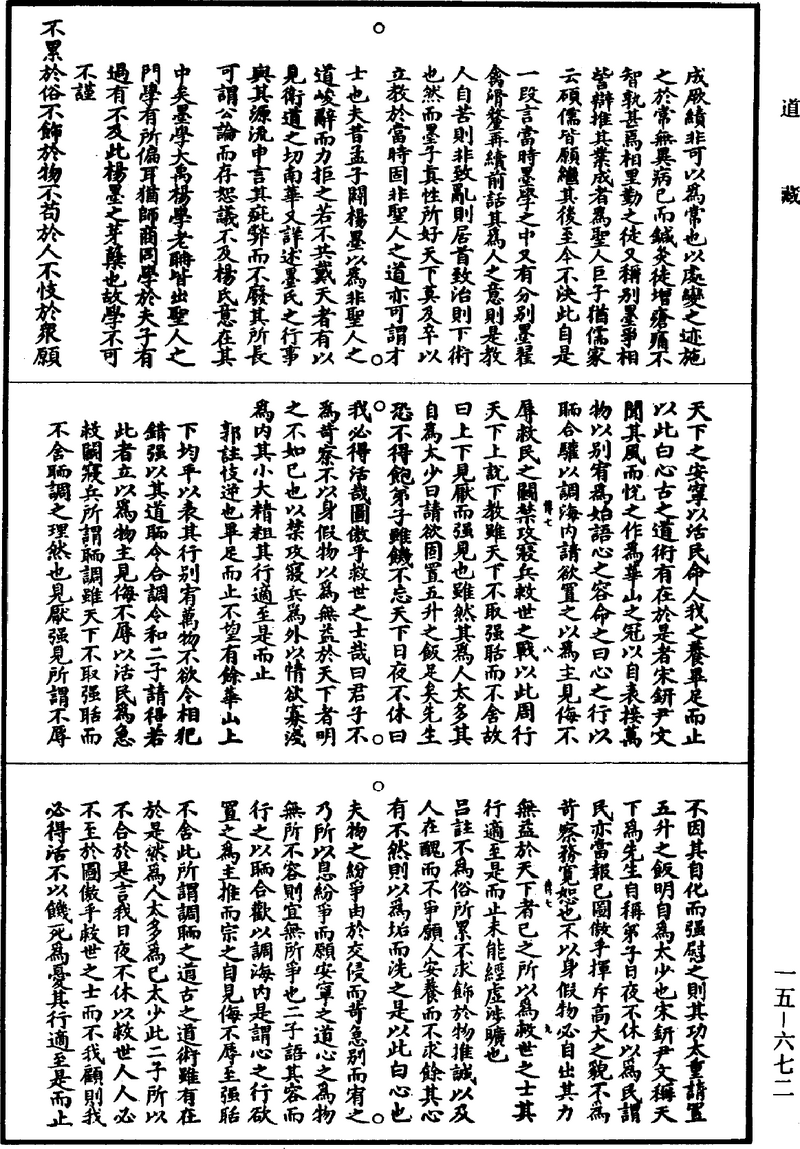 道藏
成厥績非可以為常也以處變之迹施
之於常無異病已而鍼灸徒增瘡痛不
智孰甚焉相里勤之徒又稱別墨爭相
訾辯推其業成者為聖人巨子猶儒家
云碩儒皆願繼其後至今不決此自是
一段言當時墨學之中又有分別墨翟
禽滑釐再續前話其為人之意則是教
人自苦則非致亂則居首致治則下術
也然而墨子真性所好天下莫及卒以
立教於當時固非聖人之道亦可謂才
士也夫昔孟子闢楊墨以為非聖人之
道峻辭而力拒之若不共戴天者有以
見衛道之切南華又詳述墨氏之行事
與其源流申言其疵弊而不廢其所長
可謂公論而存恕議不及楊氏意在其
中矣墨學大禹楊學老聃皆出聖人之
門學有所偏耳猶師商同學於夫子有
過有不及此楊墨之芽櫱也故學不可
不謹
不累於俗不飾於物不苟於人不忮於眾願
天下之安寧以活民命人我之養畢足而止
以此白心古之道術有在於是者宋鈃尹文
聞其風而悅之作為華山之冠以自表接萬
物以別宥為始語心之容命之曰心之行以
聏合驩以調海內請欲置之以為主見侮不
辱救民之鬭禁攻寢兵救世之戰以此周行
天下上說下教雖天下不取強聒而不舍故
曰上下見厭而強見也雖然其為人太多其
自為太少曰請欲固置五升之飯足矣先生
恐不得飽弟子雖饑不忘天下日夜不休曰
我必得活哉圖傲乎救世之士哉曰君子不
為苛察不以身假物以為無益於天下者明
之不如已也以禁攻寢兵為外以情欲寡淺
為內其小大精粗其行適至是而止
郭註忮逆也畢足而止不望有餘華山上
下均平以表其行別宥萬物不欲令相犯
錯強以其道聏令合調令和二子請得若
此者立以為物主見侮不辱以活民為急
救鬭寢兵所謂聏調雖天下不取強聒而
不舍聏調之理然也見厭強見所謂不辱
不因其自化而強慰之則其功太重請置
五升之飯明自為太少也宋鈃尹文稱天
下為先生自稱弟子日夜不休以為民謂
民亦當報已圖傲乎揮斥高大之貌不為
苛察務寬恕也不以身假物必自出其力
無益於天下者已之所以為救世之士其
行適至是而止未能經虛涉曠也
呂註不為俗所累不求飾於物推誠以及
人在醜而不爭願人安養而不求餘其心
有不然則以為垢而洗之是以此白心也
夫物之紛爭由於交侵而苛急別而宥之
乃所以息紛爭而願安寧之道心之為物
無所不容則宜無所爭也二子語其容而
行之以聏合歡以調海內是謂心之行欲
置之為主推而宗之自見侮不辱至強聒
不舍此所謂調聏之道古之道術雖有在
於是然為人太多為已太少此二子所以
不合於是言我日夜不休以救世人人必
不至於圖傲乎救世之士而不我顧則我
必得活不以饑死為憂其行適至是而止
一五—六七二